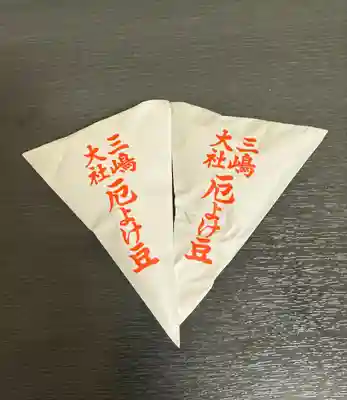 三嶋
大社
厄よけ豆
三嶋
大社
厄よけ豆